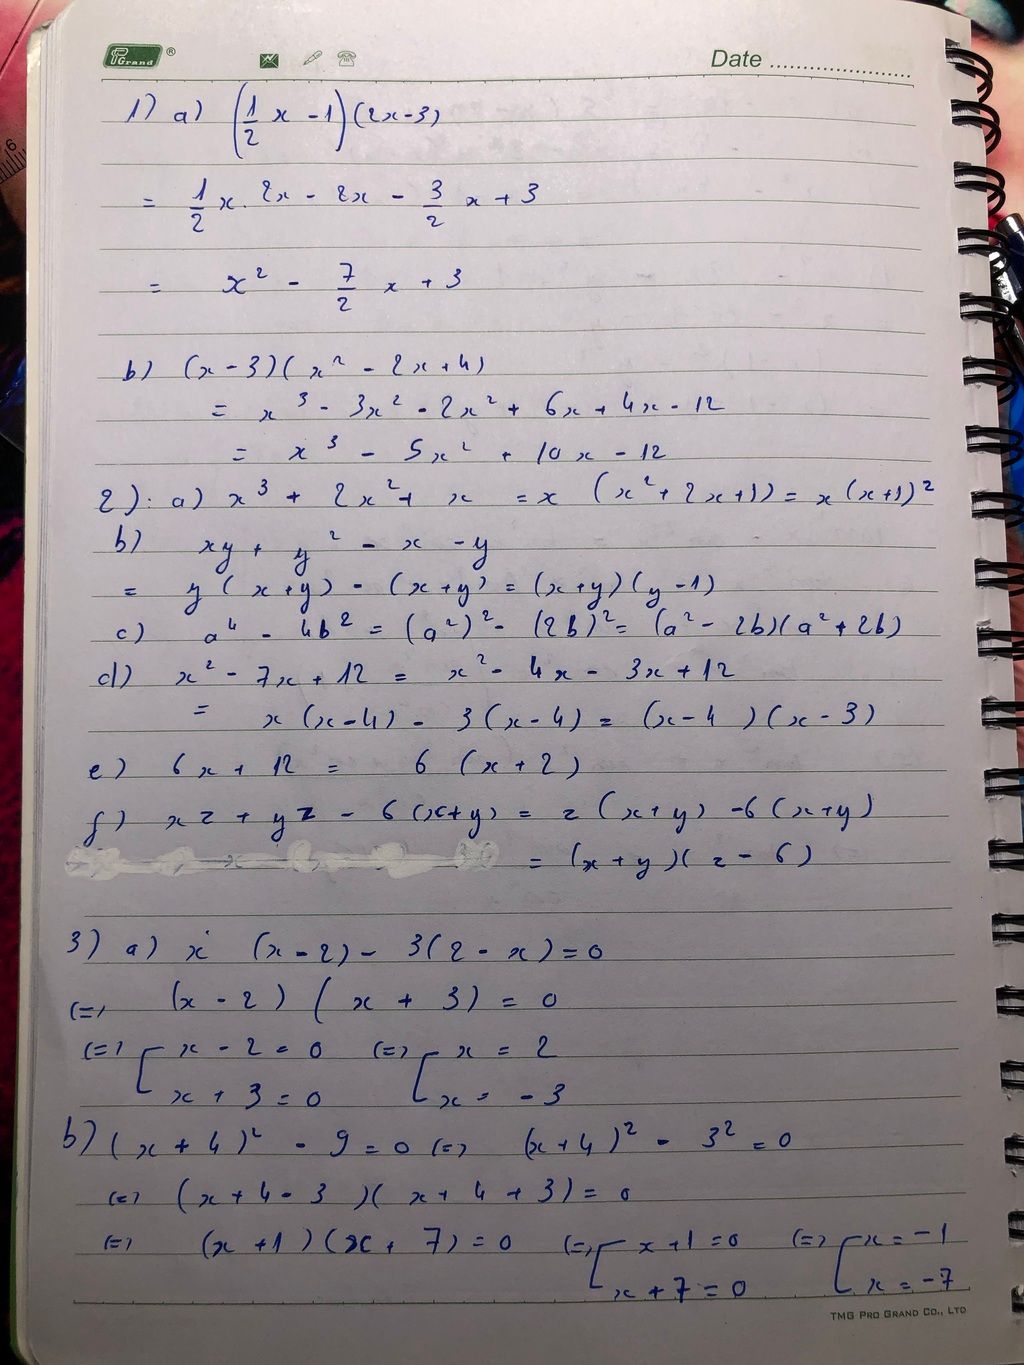 PGrand ®
Date ....................
1) a) (1/2 x - 1)(2x-3)
= 1/2 x. 2x - 2x - 3/2 x + 3
= x² - 7/2 x + 3
b) (x-3)(x² - 2x+4)
= x³ - 3x² - 2x² + 6x + 4x - 12
= x³ - 5x² + 10x - 12
2): a) x³ + 2x² + x = x (x² + 2x+1) = x(x+1)²
b) xy + y² - x - y
= y(x+y) - (x+y) = (x+y)(y-1)
c) a⁴ - 4b² = (a²)² - (2b)² = (a² - 2b)(a² + 2b)
d) x² - 7x + 12 = x² - 4x - 3x + 12
= x(x-4) - 3(x-4) = (x-4)(x-3)
e) 6x + 12 = 6 (x+2)
f) xz + yz - 6(x+y) = z(x+y) -6(x+y)
= (x+y)(z-6)
3) a) x (x-2) - 3(2-x) = 0
(=) (x-2) (x + 3) = 0
(=) [ x - 2 = 0 (=) [ x = 2
x + 3 = 0 x = -3
b) (x+4)² - 9 = 0 (=) (x+4)² - 3² = 0
(=) (x+4-3)(x+4+3) = 0
(=) (x+1)(x+7) = 0 (=) [ x+1 = 0 (=) [ x = -1
x+7 = 0 x = -7
TMG Pro Grand Co., Ltd